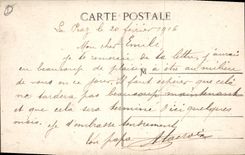 CARTE POSTALE
Le 20 février 1916
Mon cher Emile
je te remercie de ta lettre, j'aurai
eu beaucoup de plaisir à être au milieu
de vous en ce jour, il faut espérer que cela
ne tardera pas beaucoup maintenant
et que cela sera terminé d'ici quelques
mois. Je t'embrasse tendrement
Ton papa